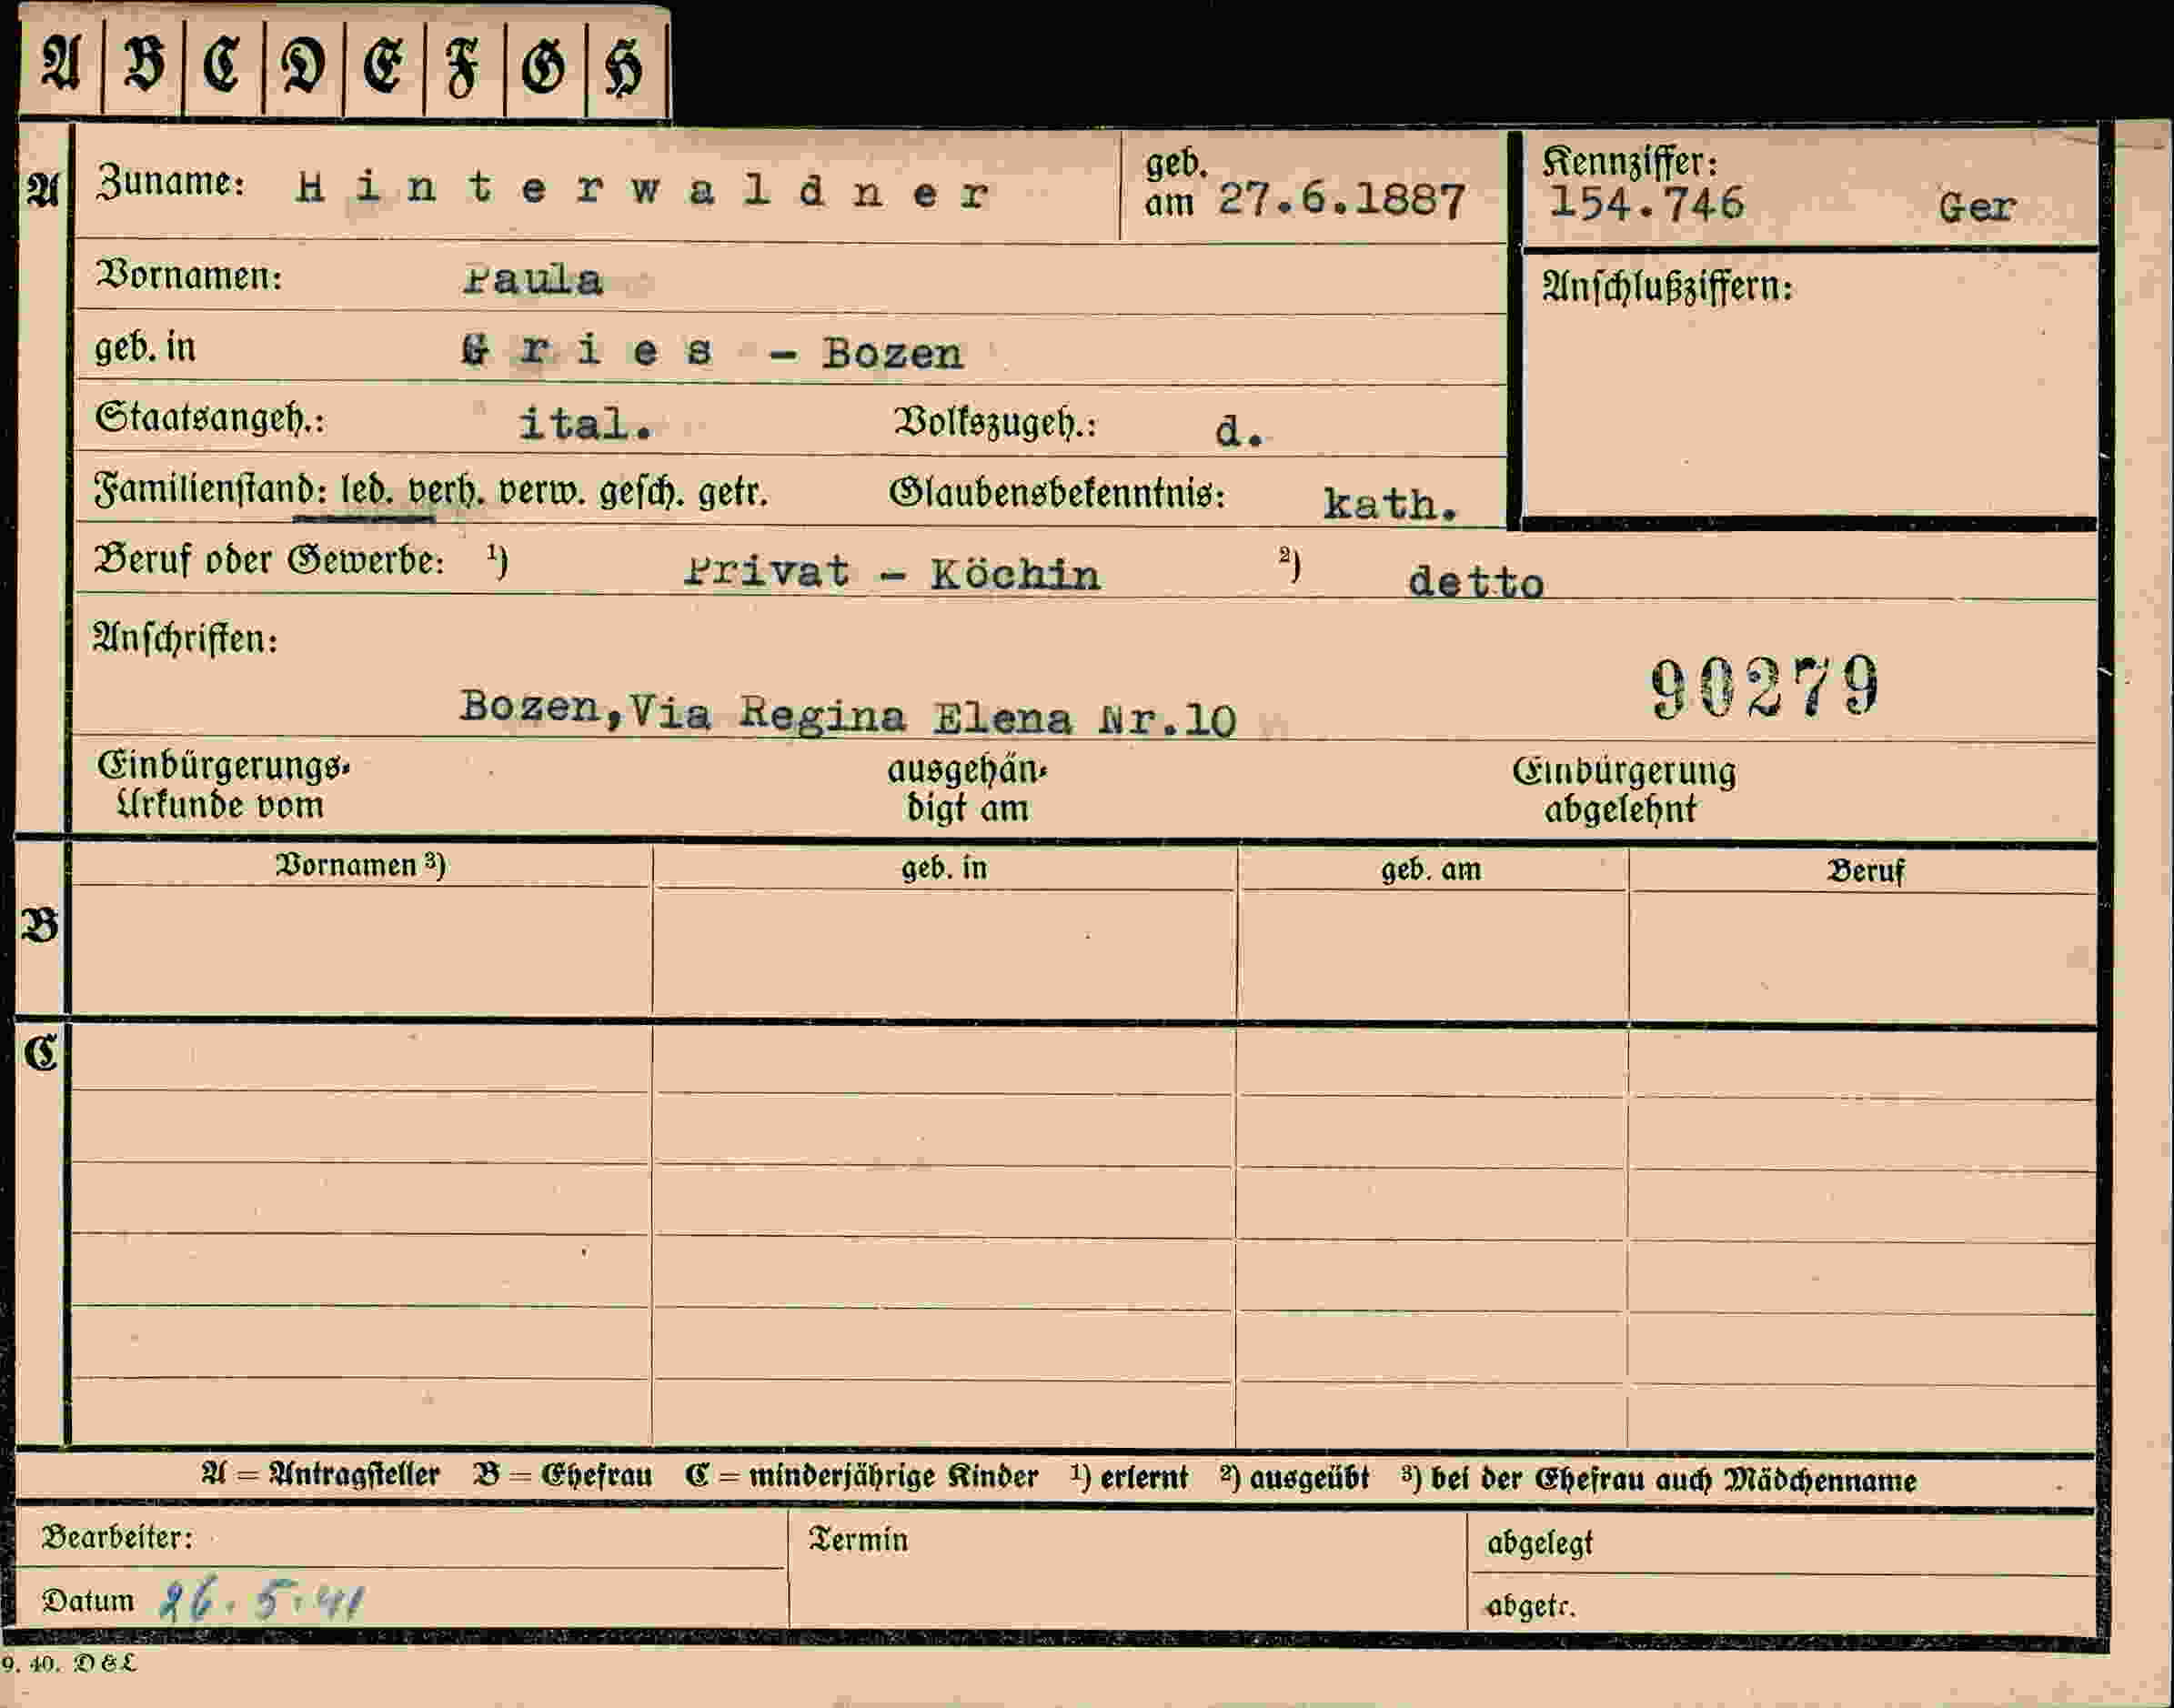 A B C D E F G H
A Zuname: Hinterwaldner geb. am 27.6.1887 Kennziffer: 154.746 Ger
Vornamen: Paula Anschlußziffern:
geb. in Gries - Bozen
Staatsangeh.: ital. Volkszugeh.: d.
Familienstand: led. verh. verw. gesch. getr. Glaubensbekenntnis: kath.
Beruf oder Gewerbe: 1) Privat - Köchin 2) detto
Anschriften:
90279
Bozen,Via Regina Elena Nr.10
Einbürgerungs- ausgehän- Einbürgerung
Urkunde vom digt am abgelehnt
Vornamen 3) geb. in geb. am Beruf
B
C
A = Antragsteller B = Ehefrau C = minderjährige Kinder 1) erlernt 2) ausgeübt 3) bei der Ehefrau auch Mädchenname
Bearbeiter: Termin abgelegt
Datum 26.5.41 abgetr.
9. 40. D & L